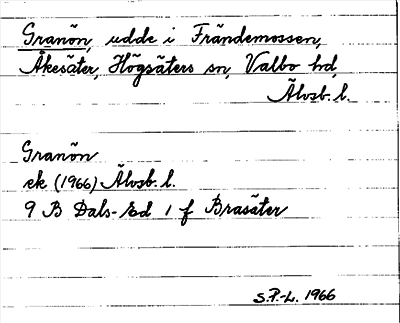 Granön, udde i Frändemossen,
Åkesäter, Högsäters sn, Valbo hd,
Älvsb. l.
Granön
ek (1966) Älvsb. l.
9 B Dals-Ed 1 f Brasäter
S.P.-L. 1966